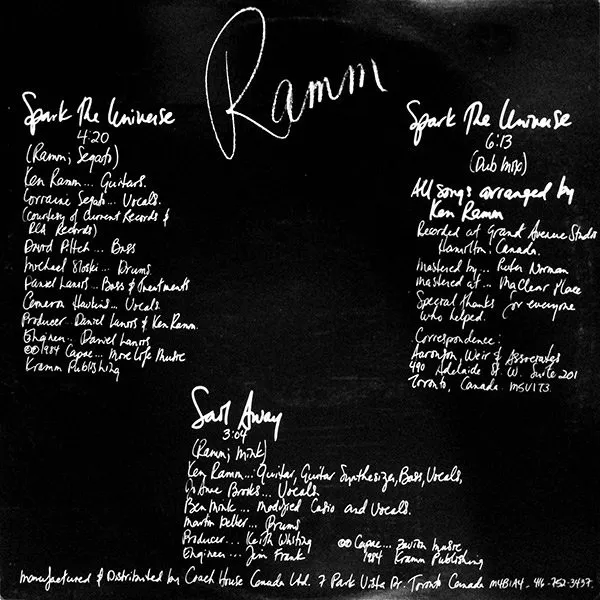 Ramm
Spark The Universe
4:20
(Ramm; Segato)
Ken Ramm... Guitars.
Lorraine Segato... Vocals.
(courtesy of Current Records &
RCA Records)
David Piltch... Bass
Michael Sloski... Drums.
Daniel Lanois... Bass & Treatments
Cameron Hawkins... Vocals.
Producer.. Daniel Lanois & Ken Ramm.
Engineer.. Daniel Lanois
©℗1984 Capac... More Life Music
Kramm Publishing
Spark The Universe
6:13
(Dub Mix)
All songs arranged by
Ken Ramm
Recorded at Grant Avenue Studio
Hamilton, Canada.
Mastered by... Peter Norman
Mastered at... MaClear Place
Special thanks for everyone
who helped.
Correspondence:
Aaronson, Weir & Associates
490 Adelaide St. W. Suite 201
Toronto, Canada. M5V1T3.
Sail Away
3:04
(Ramm; Mink)
Ken Ramm... Guitar, Guitar Synthesizer, Bass, Vocals.
Brooks... Vocals.
Ben Mink... Modified Casio and Vocals.
Martin Deller... Drums
Producer... Keith Whiting
Engineer... Jim Frank
©℗ Capac... Zavion Music
1984 Kramm Publishing
Manufactured & Distributed by Coach House Canada Ltd. 7 Park Vista Dr. Toronto Canada M4B1A4 - 416-752-3437.